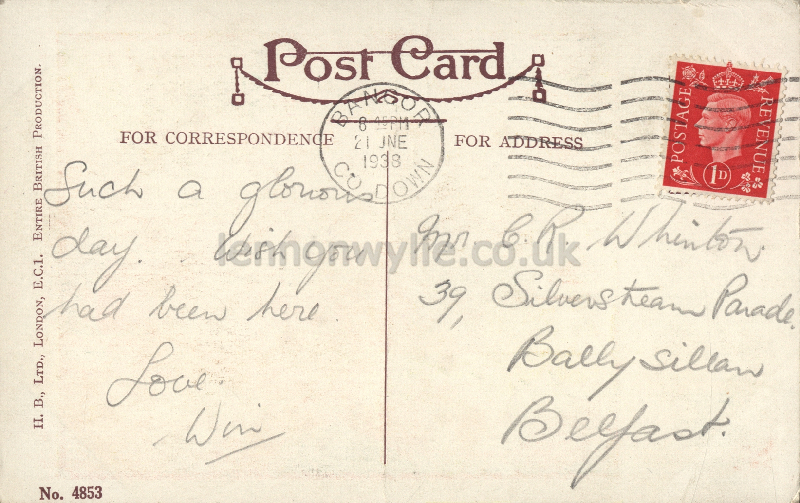 Post Card
BANGOR
8 15 PM
21 JNE
1938
CO. DOWN
POSTAGE
REVENUE
1D
FOR CORRESPONDENCE
FOR ADDRESS
Such a glorious
day. Wish you
had been here.
Love
Win
Mr C. R. Whinton.
39, Silverstream Parade.
Ballysillan
Belfast.
lennonwylie.co.uk
H. B., LTD., LONDON, E.C.1. ENTIRE BRITISH PRODUCTION.
No. 4853